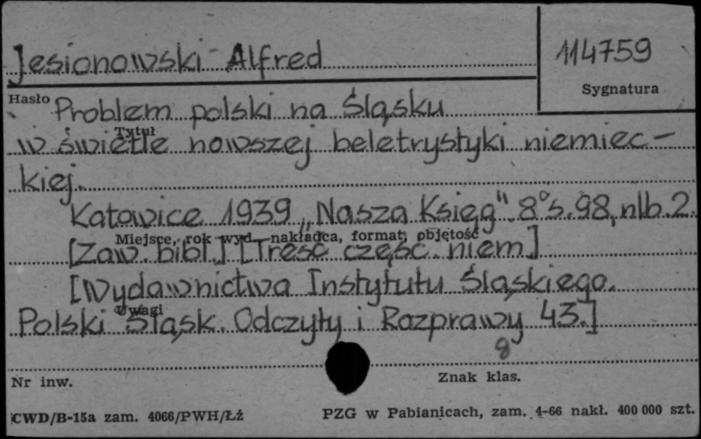 Jesionowski Alfred
114759
Sygnatura
Hasło
Problem polski na Śląsku
Tytuł
w świetle nowszej beletrystyki niemiec-
kiej.
Katowice 1939 „Nasza Księg" 8° s. 98, nlb. 2.
Miejsce, rok wyd., nakładca, format, objętość
[Zaw. bibl.] [Treść częśc. niem]
[Wydawnictwa Instytutu Śląskiego.
Uwagi
Polski Śląsk. Odczyty i Rozprawy 43.]
8
Nr inw.
Znak klas.
CWD/B-15a zam. 4066/PWH/Łź
PZG w Pabianicach, zam. 4-66 nakł. 400 000 szt.